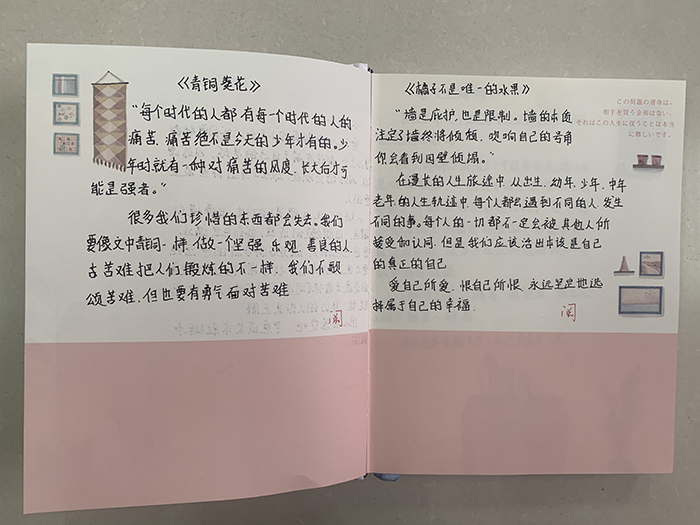 《青铜葵花》
“每个时代的人都有每一个时代的人的
痛苦，痛苦绝不是今天的少年才有的。少
年时就有一种对痛苦的风度，长大后才可
能是强者。”
很多我们珍惜的东西都会失去。我们
要像文中青铜一样做一个坚强、乐观、善良的人
苦难把人们锻炼的不一样，我们不歌
颂苦难，但也要有勇气面对苦难
阅
《橘子不是唯一的水果》
“墙是庇护，也是限制。墙的本质
注定了墙终将倾颓，吹响自己的号角
你会看到四壁倾塌。”
在漫长的人生旅途中，从出生、幼年、少年、中年
老年的人生轨迹中，每个人都会遇到不同的人，发生
不同的事。每个人的一切都不一定会被其他人所
接受和认同，但是我们应该活出本该是自己
的真正的自己
爱自己所爱，恨自己所恨，永远坚定地选
择属于自己的幸福.
阅
この問題の運命は、
相手を競う余裕はない、
それはこの人生に従うことは本当
に難しいです。